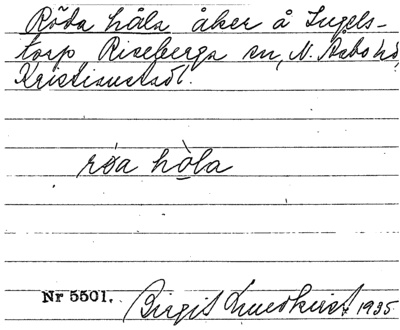 Röda håla åker å Ingels-
torp Riseberga sn, N. Åsbo hd,
Kristianstadl.
røa hòla
Nr 5501. Birgit Lundkvist 1935